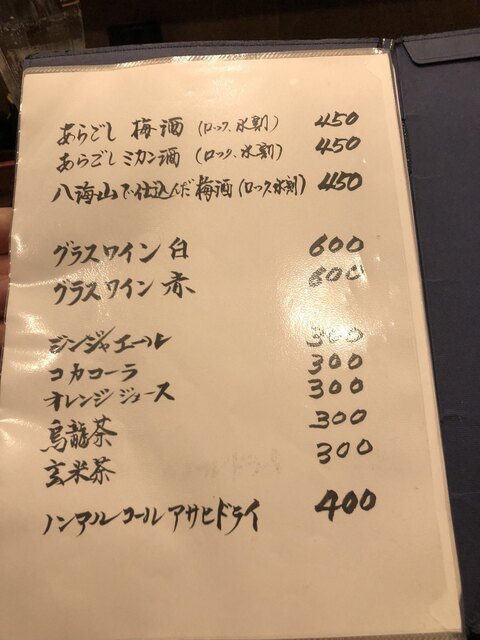 あらごし 梅酒 (ロック、水割) 450
あらごし ミカン酒 (ロック、水割) 450
八海山で仕込んだ梅酒 (ロック、水割) 450
グラスワイン 白 600
グラスワイン 赤 600
ジンジャエール 300
コカコーラ 300
オレンジジュース 300
烏龍茶 300
玄米茶 300
ノンアルコール アサヒドライ 400